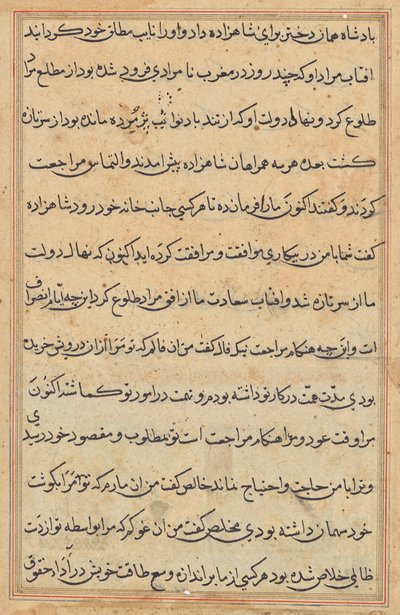 بادشاه همان دختر برای شاهزاده داد و او را نایب مطلق خود کردانید
افتاب مراد او که چند روز در مغرب نامرادی فرو د شده بود از مطلع مراد
طلوع کرد و نهال دولت او که از تند باد نوائب پژمرده مانده بود از سر تازه
کشت بعده هر سه همراهان شاهزاده پیش امدند و التماس مراجعت
کردند و کفتند اکنون ما را فرمان ده تا هر کسی جانب خانه خود رود شاهزاده
کفت شما با من در بیکاری موافقت و مرافقت کرده اید اکنون که نهال دولت
ما از سر تازه شد و افتاب سعادت ما از افق مراد طلوع کرد این چه ایام انصراف
است و این چه هنکام مراجعت نیک فال کفت من ان فالم که تو مرا از ان درویش خریده
بودی مدت همت در کار تو داشته بودم و نهمت در امور تو کماشته اکنون
مرا وقت عود و مرا هنکام مراجعت است تو بمطلوب و مقصود خود رسیدی
و ترا با من حاجت و احتیاج نماند خالص کفت من ان مارم که تو مرا بکوشت
خود مهمان داشته بودی مخلص کفت من ان غوکم که مرا بواسطه تو از دست
ظالمی خلاص شده بود هر کسی از ما بر اندازه وسع طاقت خویش در آداء حقوق